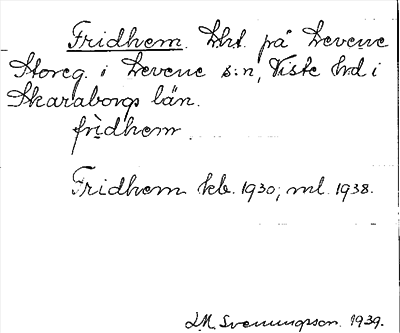 Fridhem. Lht. på Levene
Storeg. i Levene s:n, Viste hd i
Skaraborgs län.
frìdhem
Fridhem kb. 1930; ml. 1938.
S.M. Svenungsson. 1939.